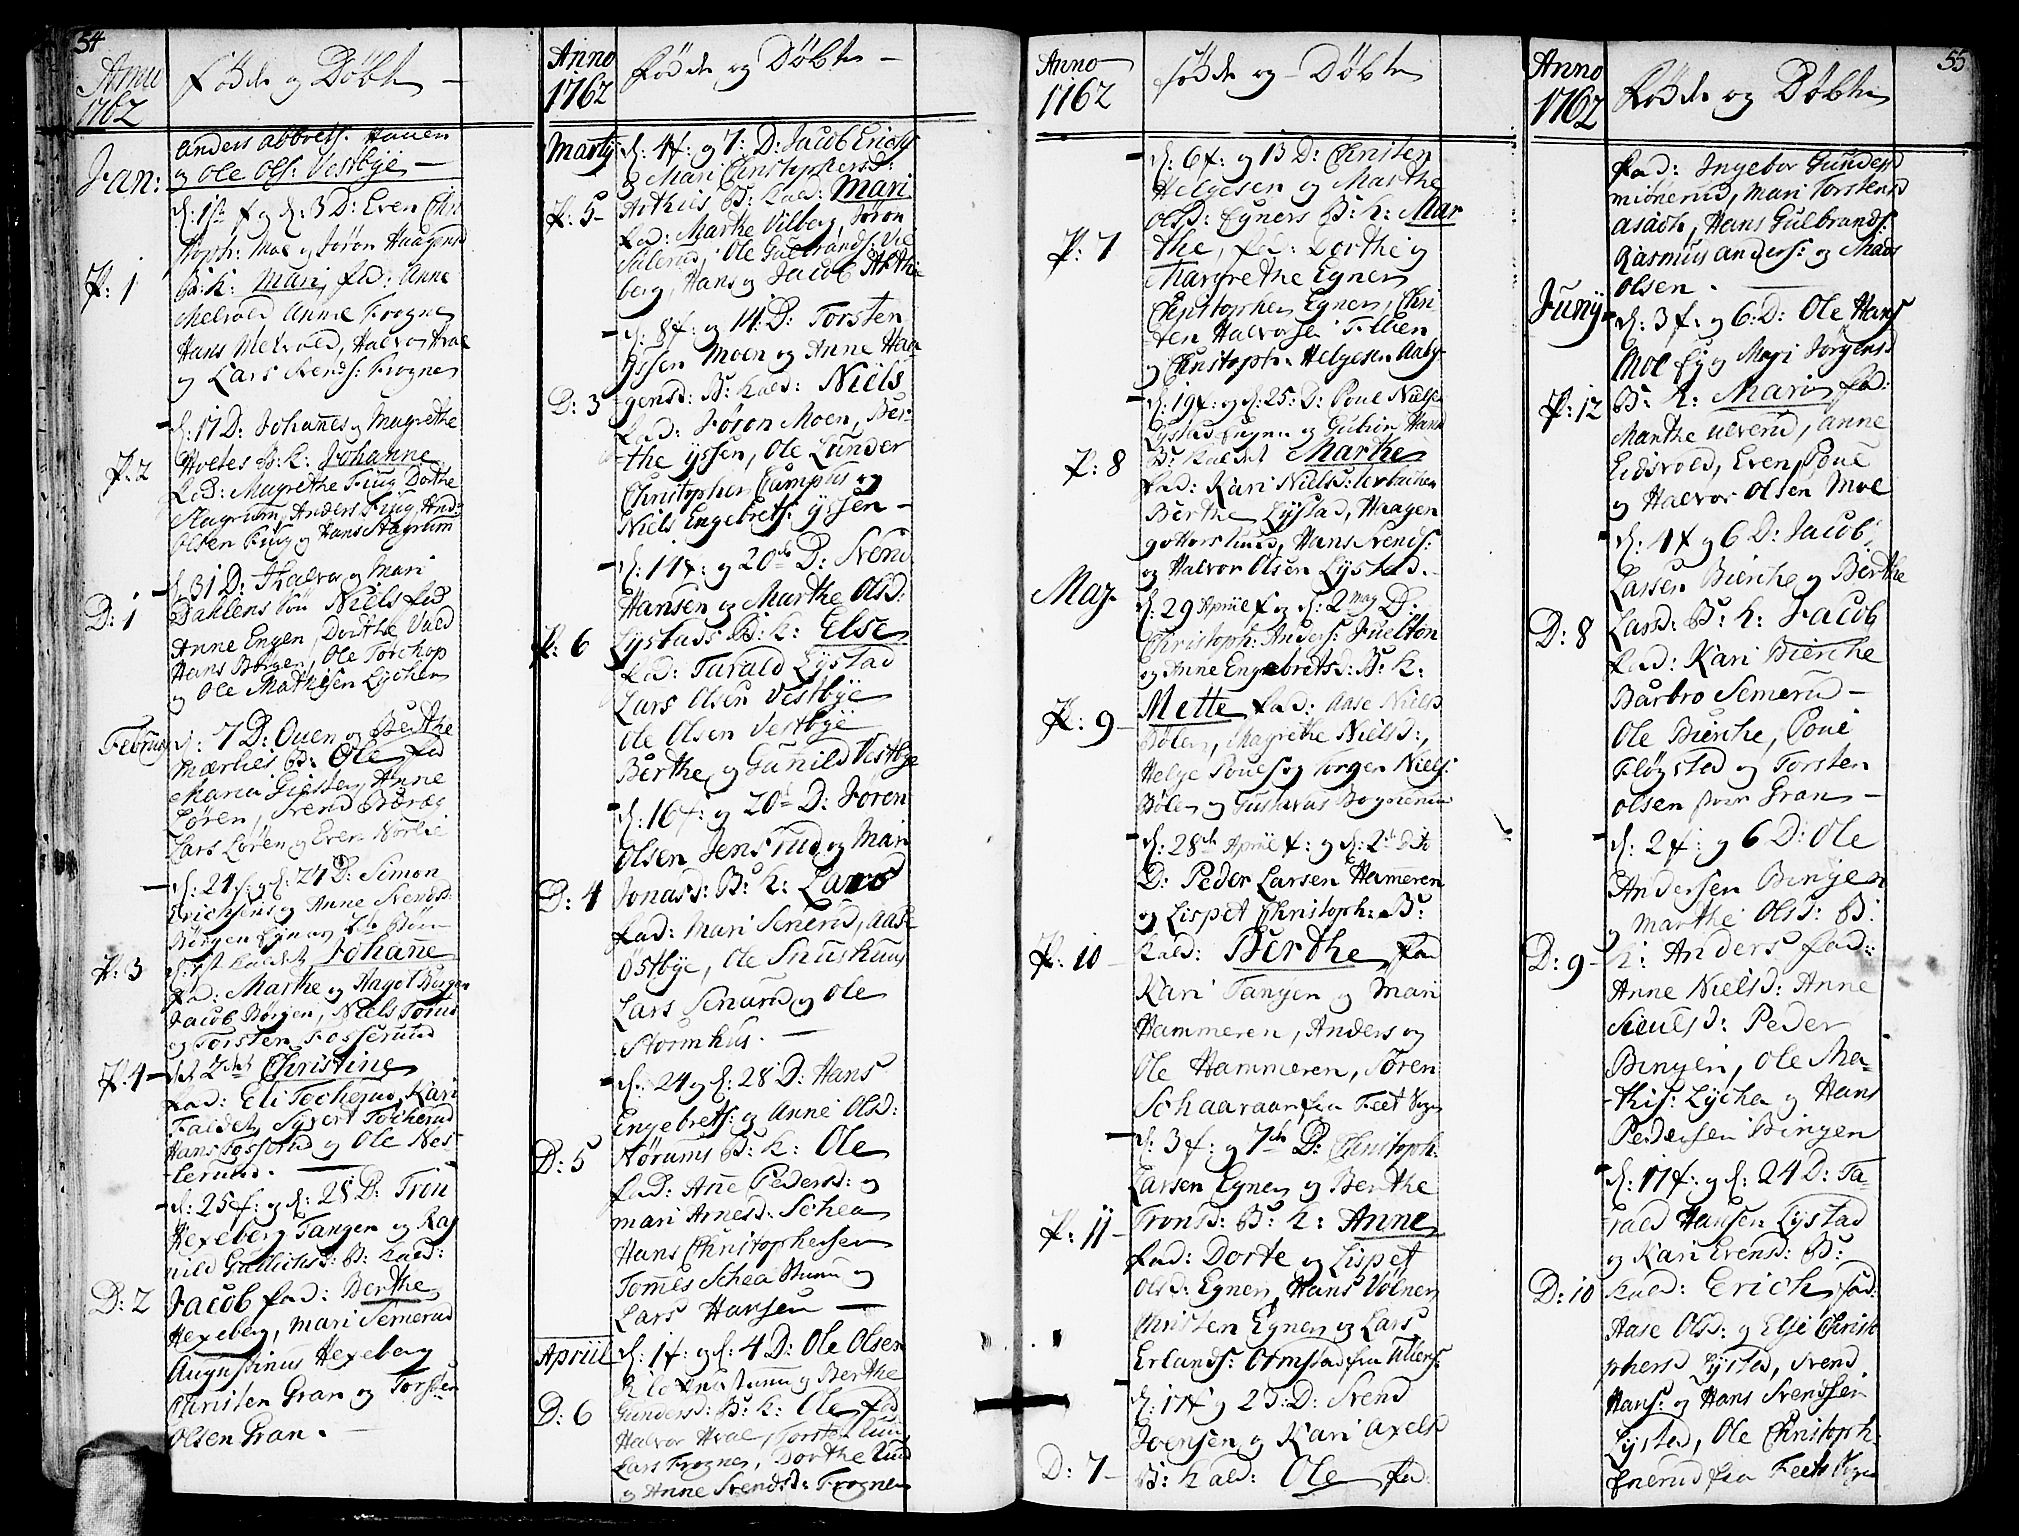 54
Anno
1762
Fødte og Døbte
Anders abbrets: Hauen
Jan:
og Ole Ols: Vestbÿe
d: 1ste f og d: 3 D: Even Chri
stoph: Moe og Jøron Haagensd
P: 1
B: k: Mari, fad: Anne
Melvold Anne Frogner
Hans Melvold, Halvor Hval
og Lars Svends: Frogner
d: 17 D: Johannes og Magrethe
P: 2
Holtes B: k: Johanne
fad: Magrethe Fiug Dorthe
Stagrum, Anders Fiug, And:
Olsen Fiug og Hans Stagrum
d: 31 D: Halvor og Mari
D: 1
Dahlens Søn Niels fad
Anne Engen, Dorthe Vald
Hans Børgen, Ole Torchop
og Ole Mathisen Lÿchen
Februarÿ
d: 7 D: Ouen og Berthe
Mærlies B: Ole fad
Maria Giester, Anne
Løren, Svend Buræg
Lars Løren og Even Norlie
d: 24 f: og d: 27 D: Simon
Erichsens og Anne Svendsd:
Børgen
P: 3
d: 1st kaldet Johanne
fad: Marthe og Hagot Børgen
Jacob Børgen, Niels
og Torsten Fosserud
P: 4
d: 2det Christine
fad: Eli Tocherud, Kari
Faldet, Sÿvert Tocherud
Hans Fosserud og Ole Nes-
lerud.
d: 25 f: og d: 28 D: Tron
Hexeberg Tangen og Rag
nild Gulichsd: B: kald:
D: 2
Jacob fad: Berthe
Hexeberg, Mari Semerud
Augustinus Hexeberg
Christen Gran og Torsten
Olsen Gran.
Anno
1762
Fødte og Døbte
Martÿ
d: 4 f: og 7: D: Jacob Erichs
og Mari Christophersd:
P: 5
Arthies B: kald: Mari
fad: Marthe Vilberg, Jøron
Sulerud, Ole Gulbrands: Vil
berg, Hans og Jacob Arthie
d: 8 f: og 14: D: Torsten
Yssen Moen og Anne Haa
D: 3
gensd: B: kald: Niels
fad: Jøron Moen, Ber-
the Yssen, Ole Lunder
Christopher Campus og
Niels Engebrets: Yssen
d: 14 f: og 20de D: Svend
Hansen og Marthe Olsd:
P: 6
Lÿstads B: k: Else
fad: Tarald Lÿstad
Lars Olsen Vestbÿe
Ole Olsen Vestbÿe
Berthe og Gunild Vestbÿe
d: 16 f: og 20d D: Jøren
Olsen Jensrud og Mari
D: 4
Jonasd: B: k: Lars
fad: Mari Senerud, Aase
Østbÿe, Ole Snushuus
Lars Senerud og Ole
Stormhus.
d: 24 og d: 28 D: Hans
Engebrets: og Anne Olsd:
D: 5
Nørums B: k: Ole
fad: Anne Pedersd: og
Mari Arnesd: Schea
Hans Christophersen
Tomes Schea stuen og
Lars Hansen
Apriil
d: 1 f: og d: 4 D: Ole Olsen
og Berthe
D: 6
Gundersd: B: k: Ole fad
Halvor Hval, Torsten
Lars Frogner, Dorthe Lund
og Anne Svendsd: Frogner
Anno
1762
Fødte og Døbte
d: 6 f: og 13 D: Christen
Helgesen og Marthe
Olsd: Egners B: k: Mar
P: 7
the, fad: Dorthe og
Margrethe Egner
Christopher Egner, Chri
sten Halvorsen Tilien
og Christoph: Helgesen Aabÿ
d: 19 f: og d: 25: D: Poul Niels
Lÿstad og Gubiør Hans
P: 8
B: kaldet Marthe
fad: Kari Nielsd:
Berthe Lÿstad, Haagen
Gottorslund, Hans Svends:
og Halvor Olsen Lÿstad.
Maj
d: 29 Apriil f og d: 2 Maj D:
Christoph: Anders: Juelton
og Anne Engebretsd: B: k:
P: 9
Mette fad: Aase Nielsd
Bølen, Magrethe Nielsd:,
Helge Pouels og Jørgen Niels:
Bølen og Gustavus Bognerud
d: 28de Apriil f: og d: 2d Dito
D: Peder Larsen Hameren
og Lispet Christoph: B:
P: 10
kald: Berthe, fad
Kari Tangen og Mari
Hammeren, Anders og
Ole Hammeren, Søren
Schaaraar fra Feet Sogn
d: 3 f: og 7de D: Christoph:
Larsen Egner og Berthe
P: 11
Tronsd: B: k: Anne
fad: Dorte og Lispet
Olsd: Egner, Hans Volner
Christen Egner og Lars
Erlands: Ormstad fra Ullens:
d: 17 f og 23: D: Svend
Joensen og Kari Axelsd
D: 7
B: kald: Ole fad:
55
Anno
1762
Fødte og Døbte
fad: Ingebor Gundersd
Miønerud, Mari Torstensd
Asach, Hans Gulbrands:
Rasmus Anders: og Mads
Olsen.
Junÿ
d: 3 f: og 6: D: Ole Hans
Moe og Mari Jørgensd
P: 12
B: k: Mari, fad:
Marthe Ulverud, Anne
Eidsvold, Even, Poul
og Halvor Olsen Moe
d: 4 f og 6 D: Jacob
Larsen Bierche og Berthe
D: 8
Larsd: B: k: Jacob
fad: Kari Bierche
Barbro Semerud
Ole Bierche, Poul
Fløgstad og Torsten
Olsen Gran
d: 2 f: og 6 D: Ole
Andersen Bingen
og Marthe Olsd: B:
D: 9
k: Anders fad:
Anne Nielsd: Anne
Sieulsd: Peder
Bingen, Ole Ma-
this: Lÿcha og Hans
Pedersen Bingen
d: 17 f: og d: 24 D: Ta-
rald Hansen Lÿstad
og Kari Evensd: B:
D: 10
kald: Erich fad:
Aase Olsd: og Else Christo
phersd Lÿstad, Svend
Hans: og Hans Svendsen
Lÿstad, Ole Christoph
fra Feets Sogn